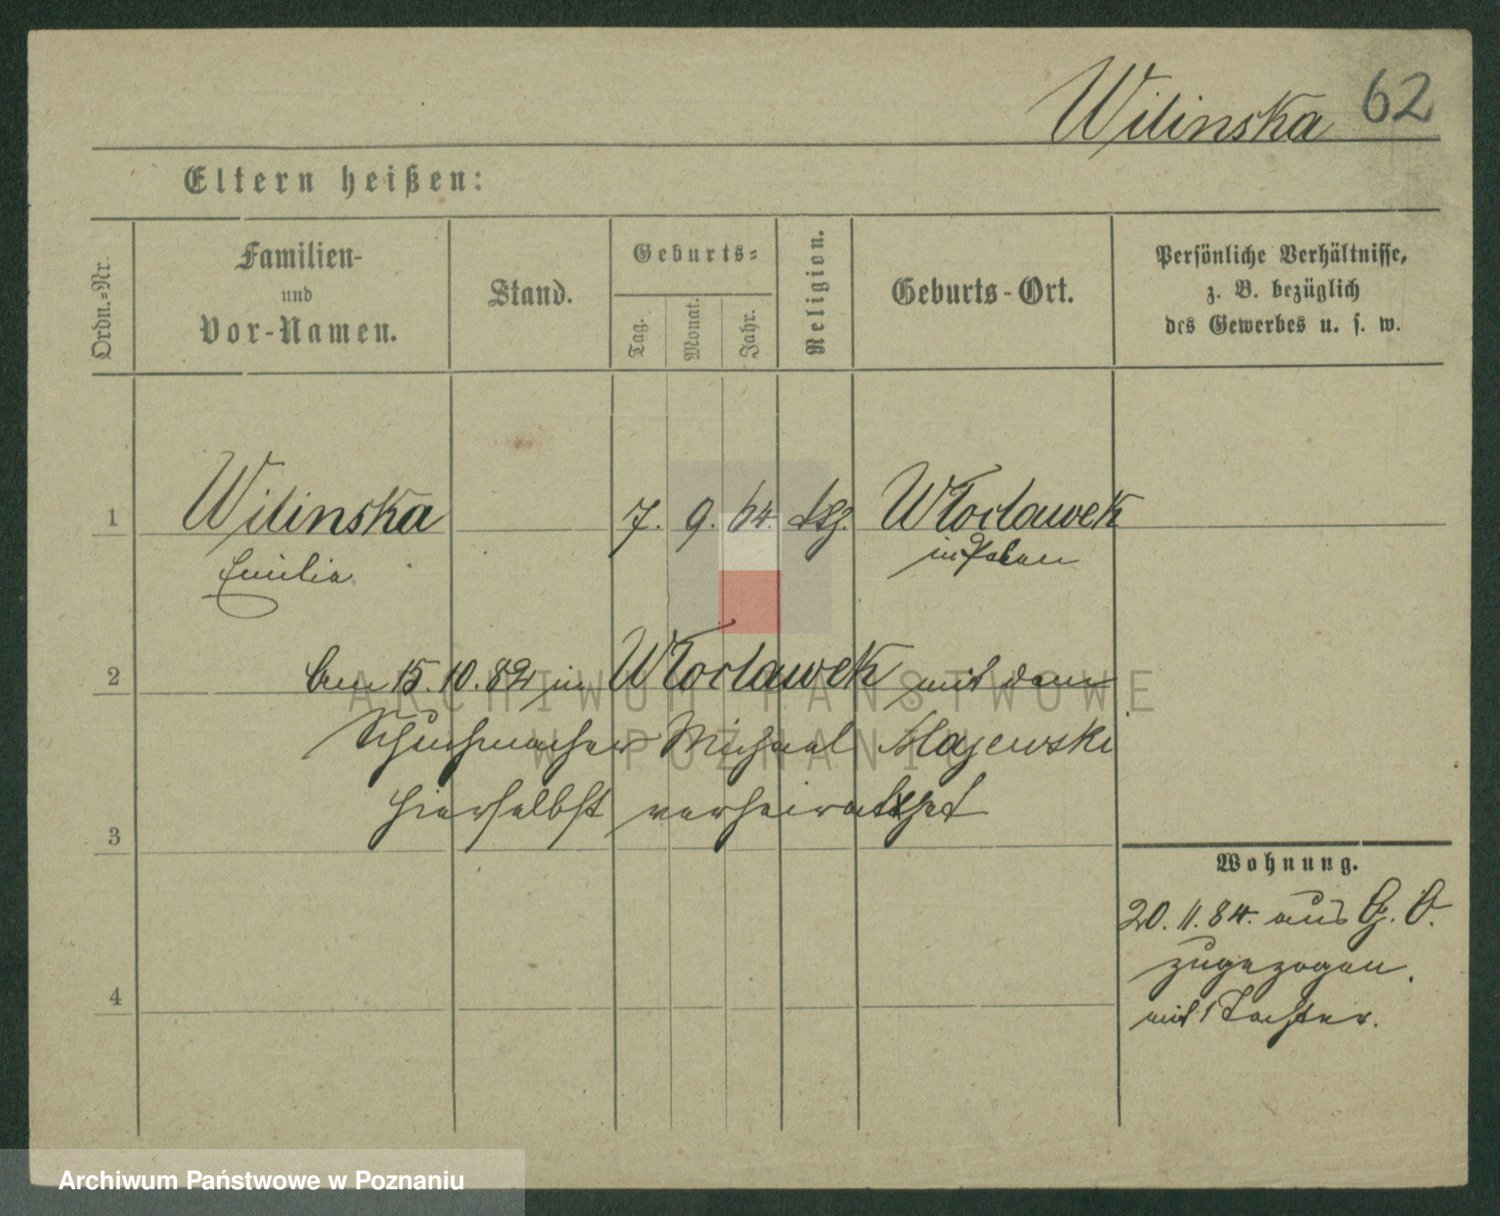 Wilinska 62
Eltern heißen:
Ordn.=Nr.
Familien-
und
Vor-Namen.
Stand.
Geburts=
Tag.
Monat.
Jahr.
Religion.
Geburts-Ort.
Persönliche Verhältnisse,
z. B. bezüglich
des Gewerbes u. s. w.
1 Wilinska 7. 9. 64. Włocławek
Emilia in Polen
2 am 15.10.82 in Włocławek mit dem
Schuhmacher Michael Majewski
hierselbst verheirathet
3
Wohnung.
20.11.84. aus G. O.
zugezogen.
4
mit 1 Tochter.
ARCHIWUM PAŃSTWOWE
W POZNANIU
Archiwum Państwowe w Poznaniu